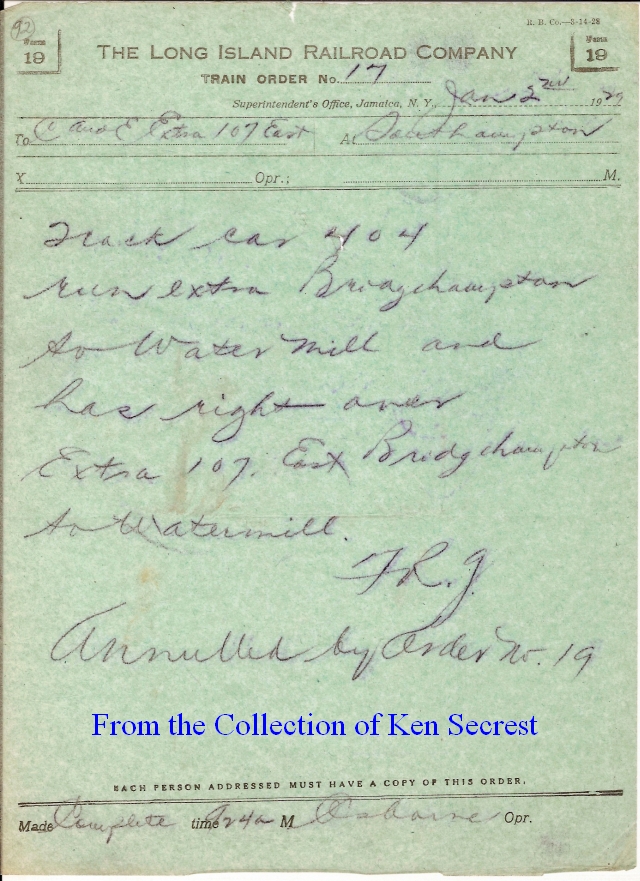 92
R. B. Co.—8-14-28
Form 19
Form 19
THE LONG ISLAND RAILROAD COMPANY
TRAIN ORDER No. 17
Superintendent's Office, Jamaica, N. Y., Jan 2nd 1929
To C and E Extra 107 East At Southampton
X Opr.; M.
Track car 404
run extra Bridgehampton
to Water Mill and
has right over
Extra 107. East Bridgehampton
to Watermill.
F.R.G.
Annulled by Order No. 19
From the Collection of Ken Secrest
EACH PERSON ADDRESSED MUST HAVE A COPY OF THIS ORDER.
Made Complete time 924a M Osborne Opr.